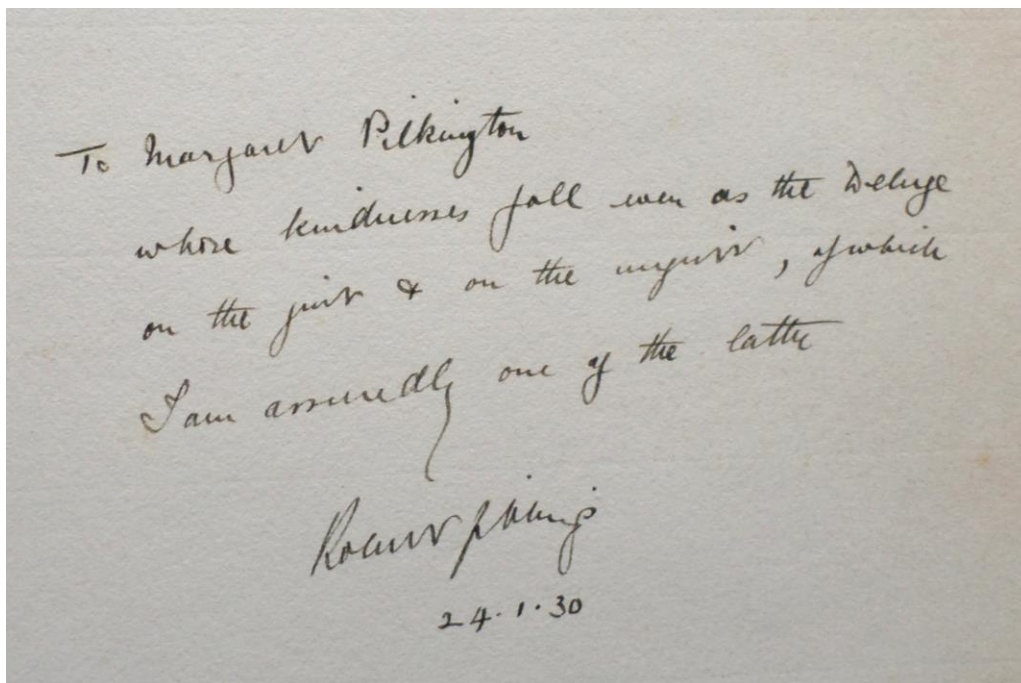 To Margaret Pilkington
whose kindnesses fall even as the Deluge
on the just & on the unjust, of which
I am assuredly one of the latter
Robert Gibbings
24.1.30